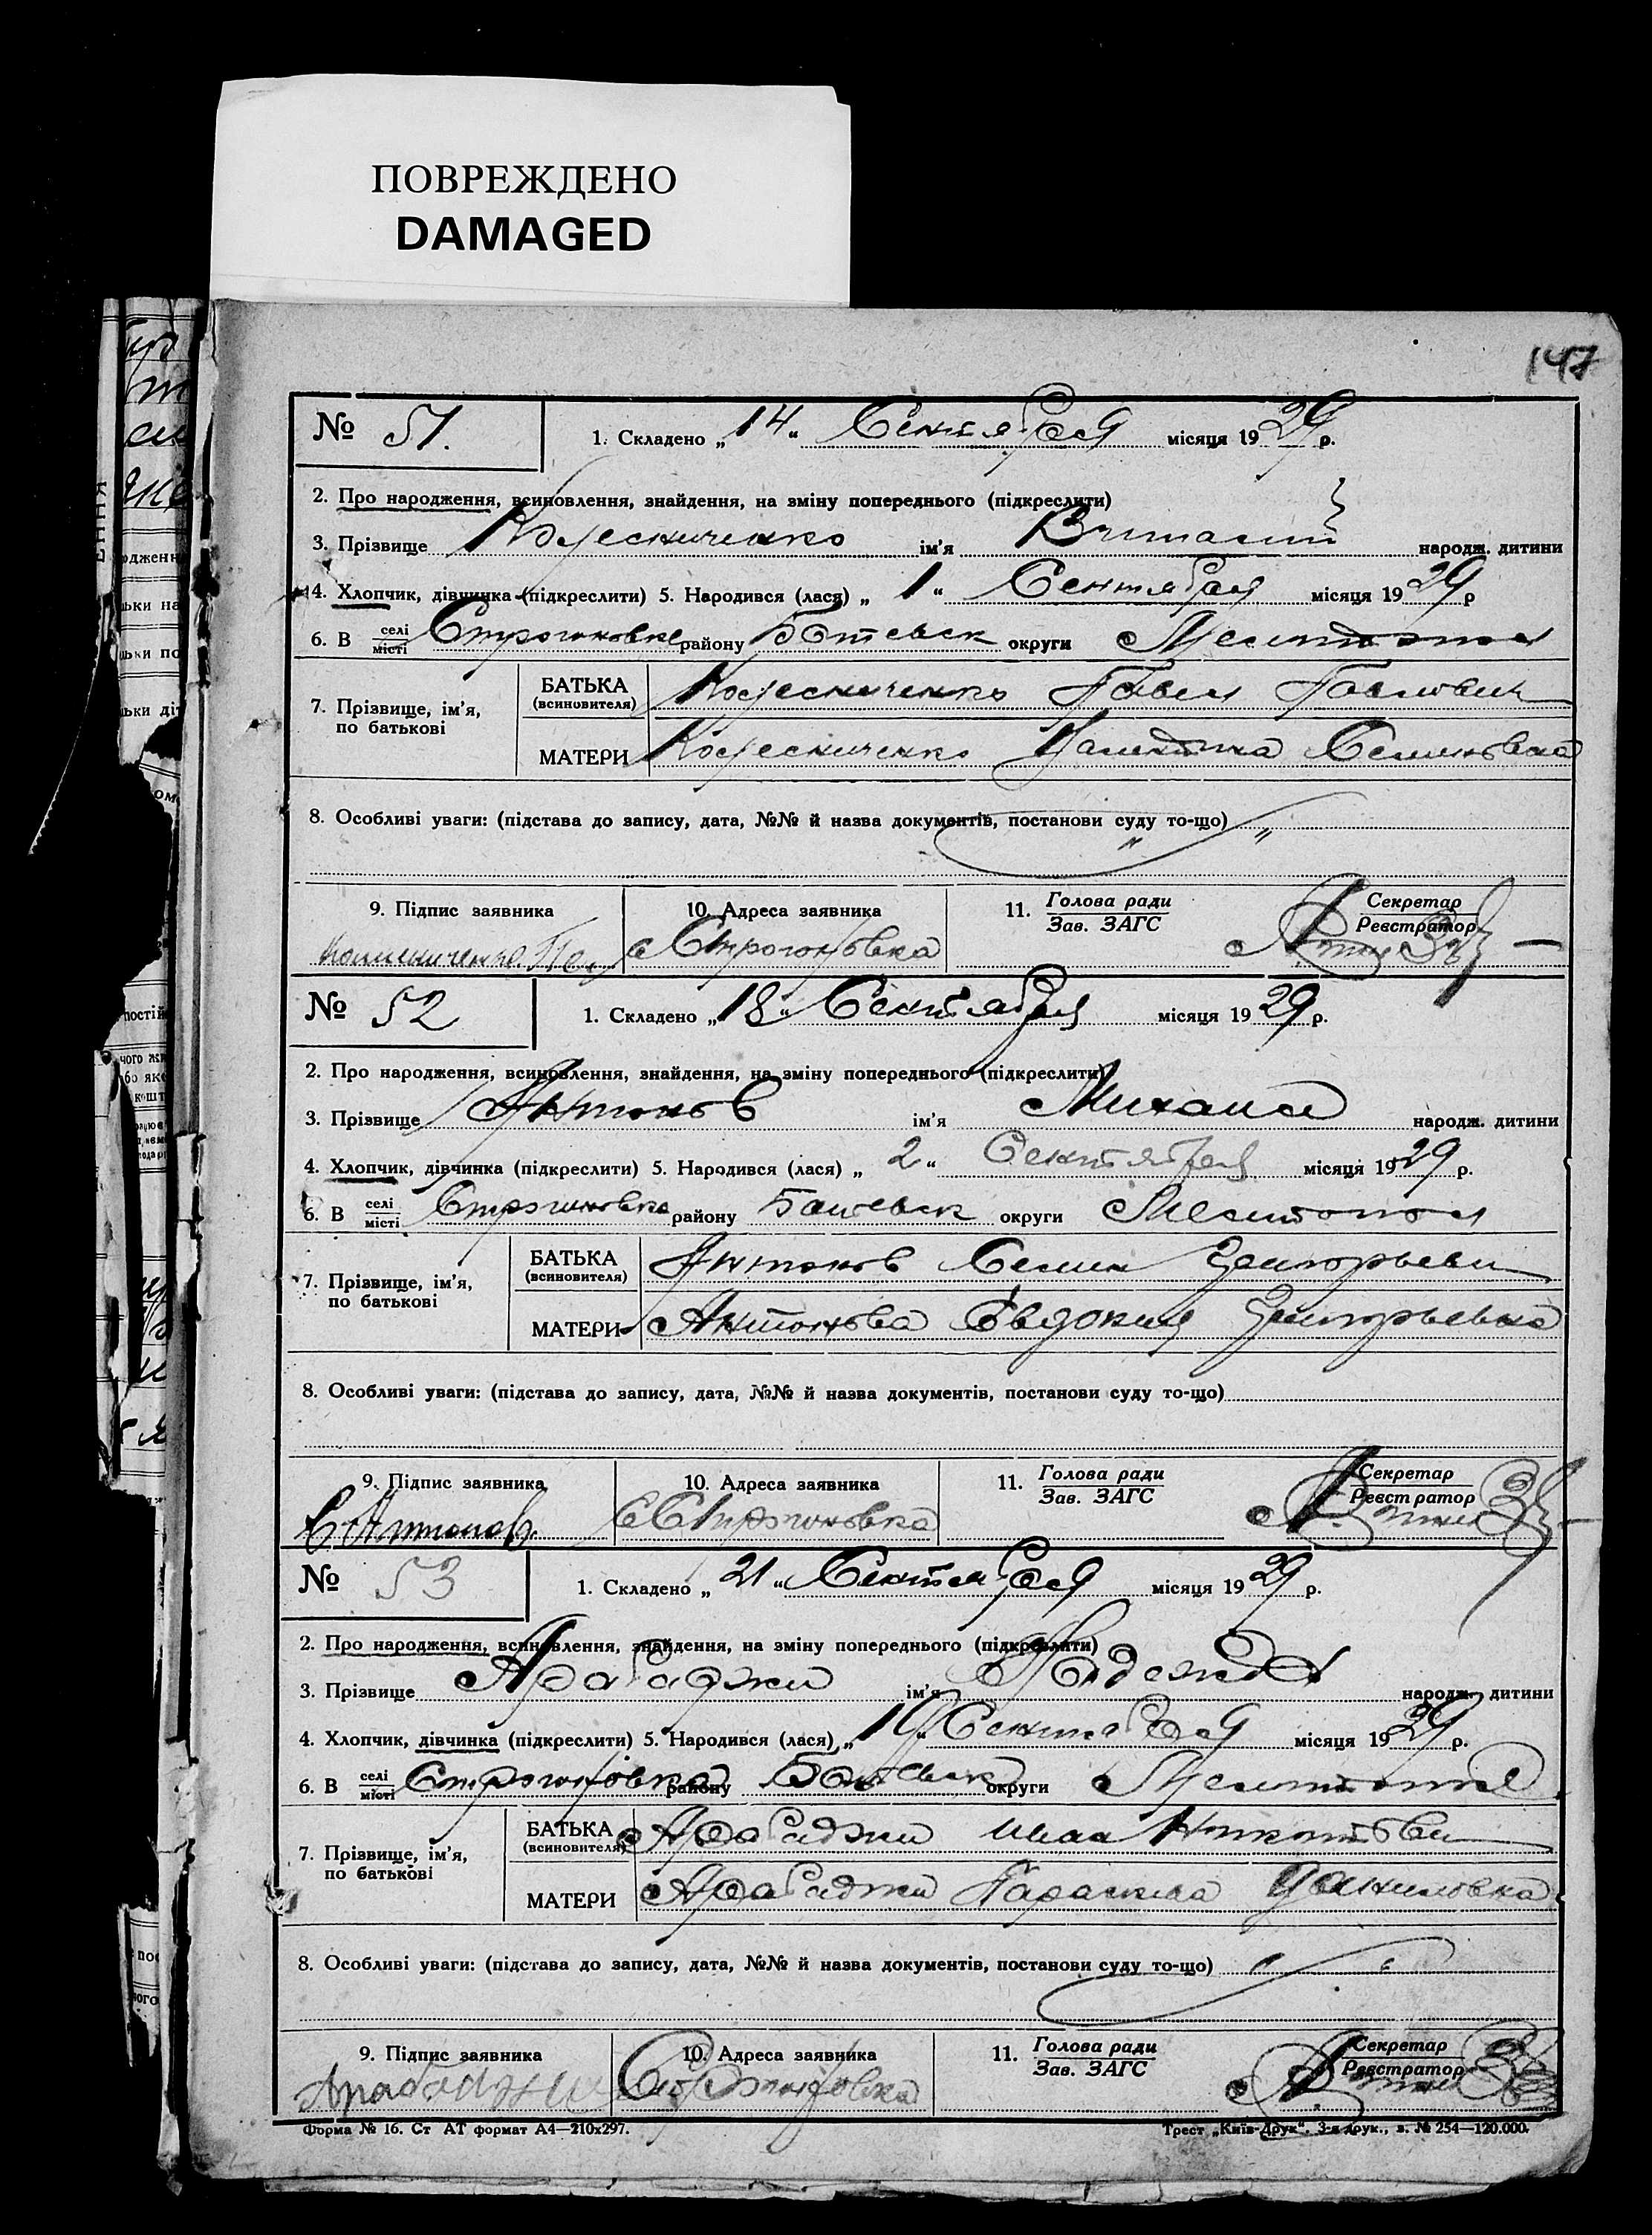 ПОВРЕЖДЕНО
DAMAGED
147
№ 51.
1. Складено „14“ Сентября місяця 1929 р.
2. Про народження, всиновлення, знайдення, на зміну попереднього (підкреслити)
3. Прізвище Колесниченко ім'я Виталий народж. дитини
4. Хлопчик, дівчинка (підкреслити) 5. Народився (лася) „1“ Сентября місяця 1929 р
6. В селі/місті Строгоновке району Ботевск округи Мелитопол
7. Прізвище, ім'я, по батькові
БАТЬКА (всиновителя) Колесниченко Павел Павлович
МАТЕРИ Колесниченко Валентина Семеновна
8. Особливі уваги: (підстава до запису, дата, №№ й назва документів, постанови суду то-що) „ „
9. Підпис заявника
10. Адреса заявника
11. Голова ради/Зав. ЗАГС
Секретар/Реєстратор
с Строгоновка
№ 52
1. Складено „18“ Сентября місяця 1929 р.
2. Про народження, всиновлення, знайдення, на зміну попереднього (підкреслити)
3. Прізвище Антонов ім'я Михаил народж. дитини
4. Хлопчик, дівчинка (підкреслити) 5. Народився (лася) „2“ Сентября місяця 1929 р.
6. В селі/місті Строгоновка району Ботевск округи Мелитопол
7. Прізвище, ім'я, по батькові
БАТЬКА (всиновителя) Антонов Семен Григорьеви
МАТЕРИ Антонова Евдокия Григорьевна
8. Особливі уваги: (підстава до запису, дата, №№ й назва документів, постанови суду то-що)
9. Підпис заявника
10. Адреса заявника
11. Голова ради/Зав. ЗАГС
Секретар/Реєстратор
С Антонов
с Строгоновка
№ 53
1. Складено „21“ Сентября місяця 1929 р.
2. Про народження, всиновлення, знайдення, на зміну попереднього (підкреслити)
3. Прізвище Арабаджи ім'я Надежда народж. дитини
4. Хлопчик, дівчинка (підкреслити) 5. Народився (лася) „19“ Сентября місяця 1929 р.
6. В селі/місті Строгоновка району Ботевск округи Мелитопол
7. Прізвище, ім'я, по батькові
БАТЬКА (всиновителя) Арабаджи Иван
МАТЕРИ Арабаджи Параскева Даниловна
8. Особливі уваги: (підстава до запису, дата, №№ й назва документів, постанови суду то-що) „ „
9. Підпис заявника
10. Адреса заявника
11. Голова ради/Зав. ЗАГС
Секретар/Реєстратор
Арабаджи
Строгоновка
Форма № 16. Ст АТ формат А4—210х297.
Трест „Київ-Друк“. 3-я друк., з. № 254—120.000.